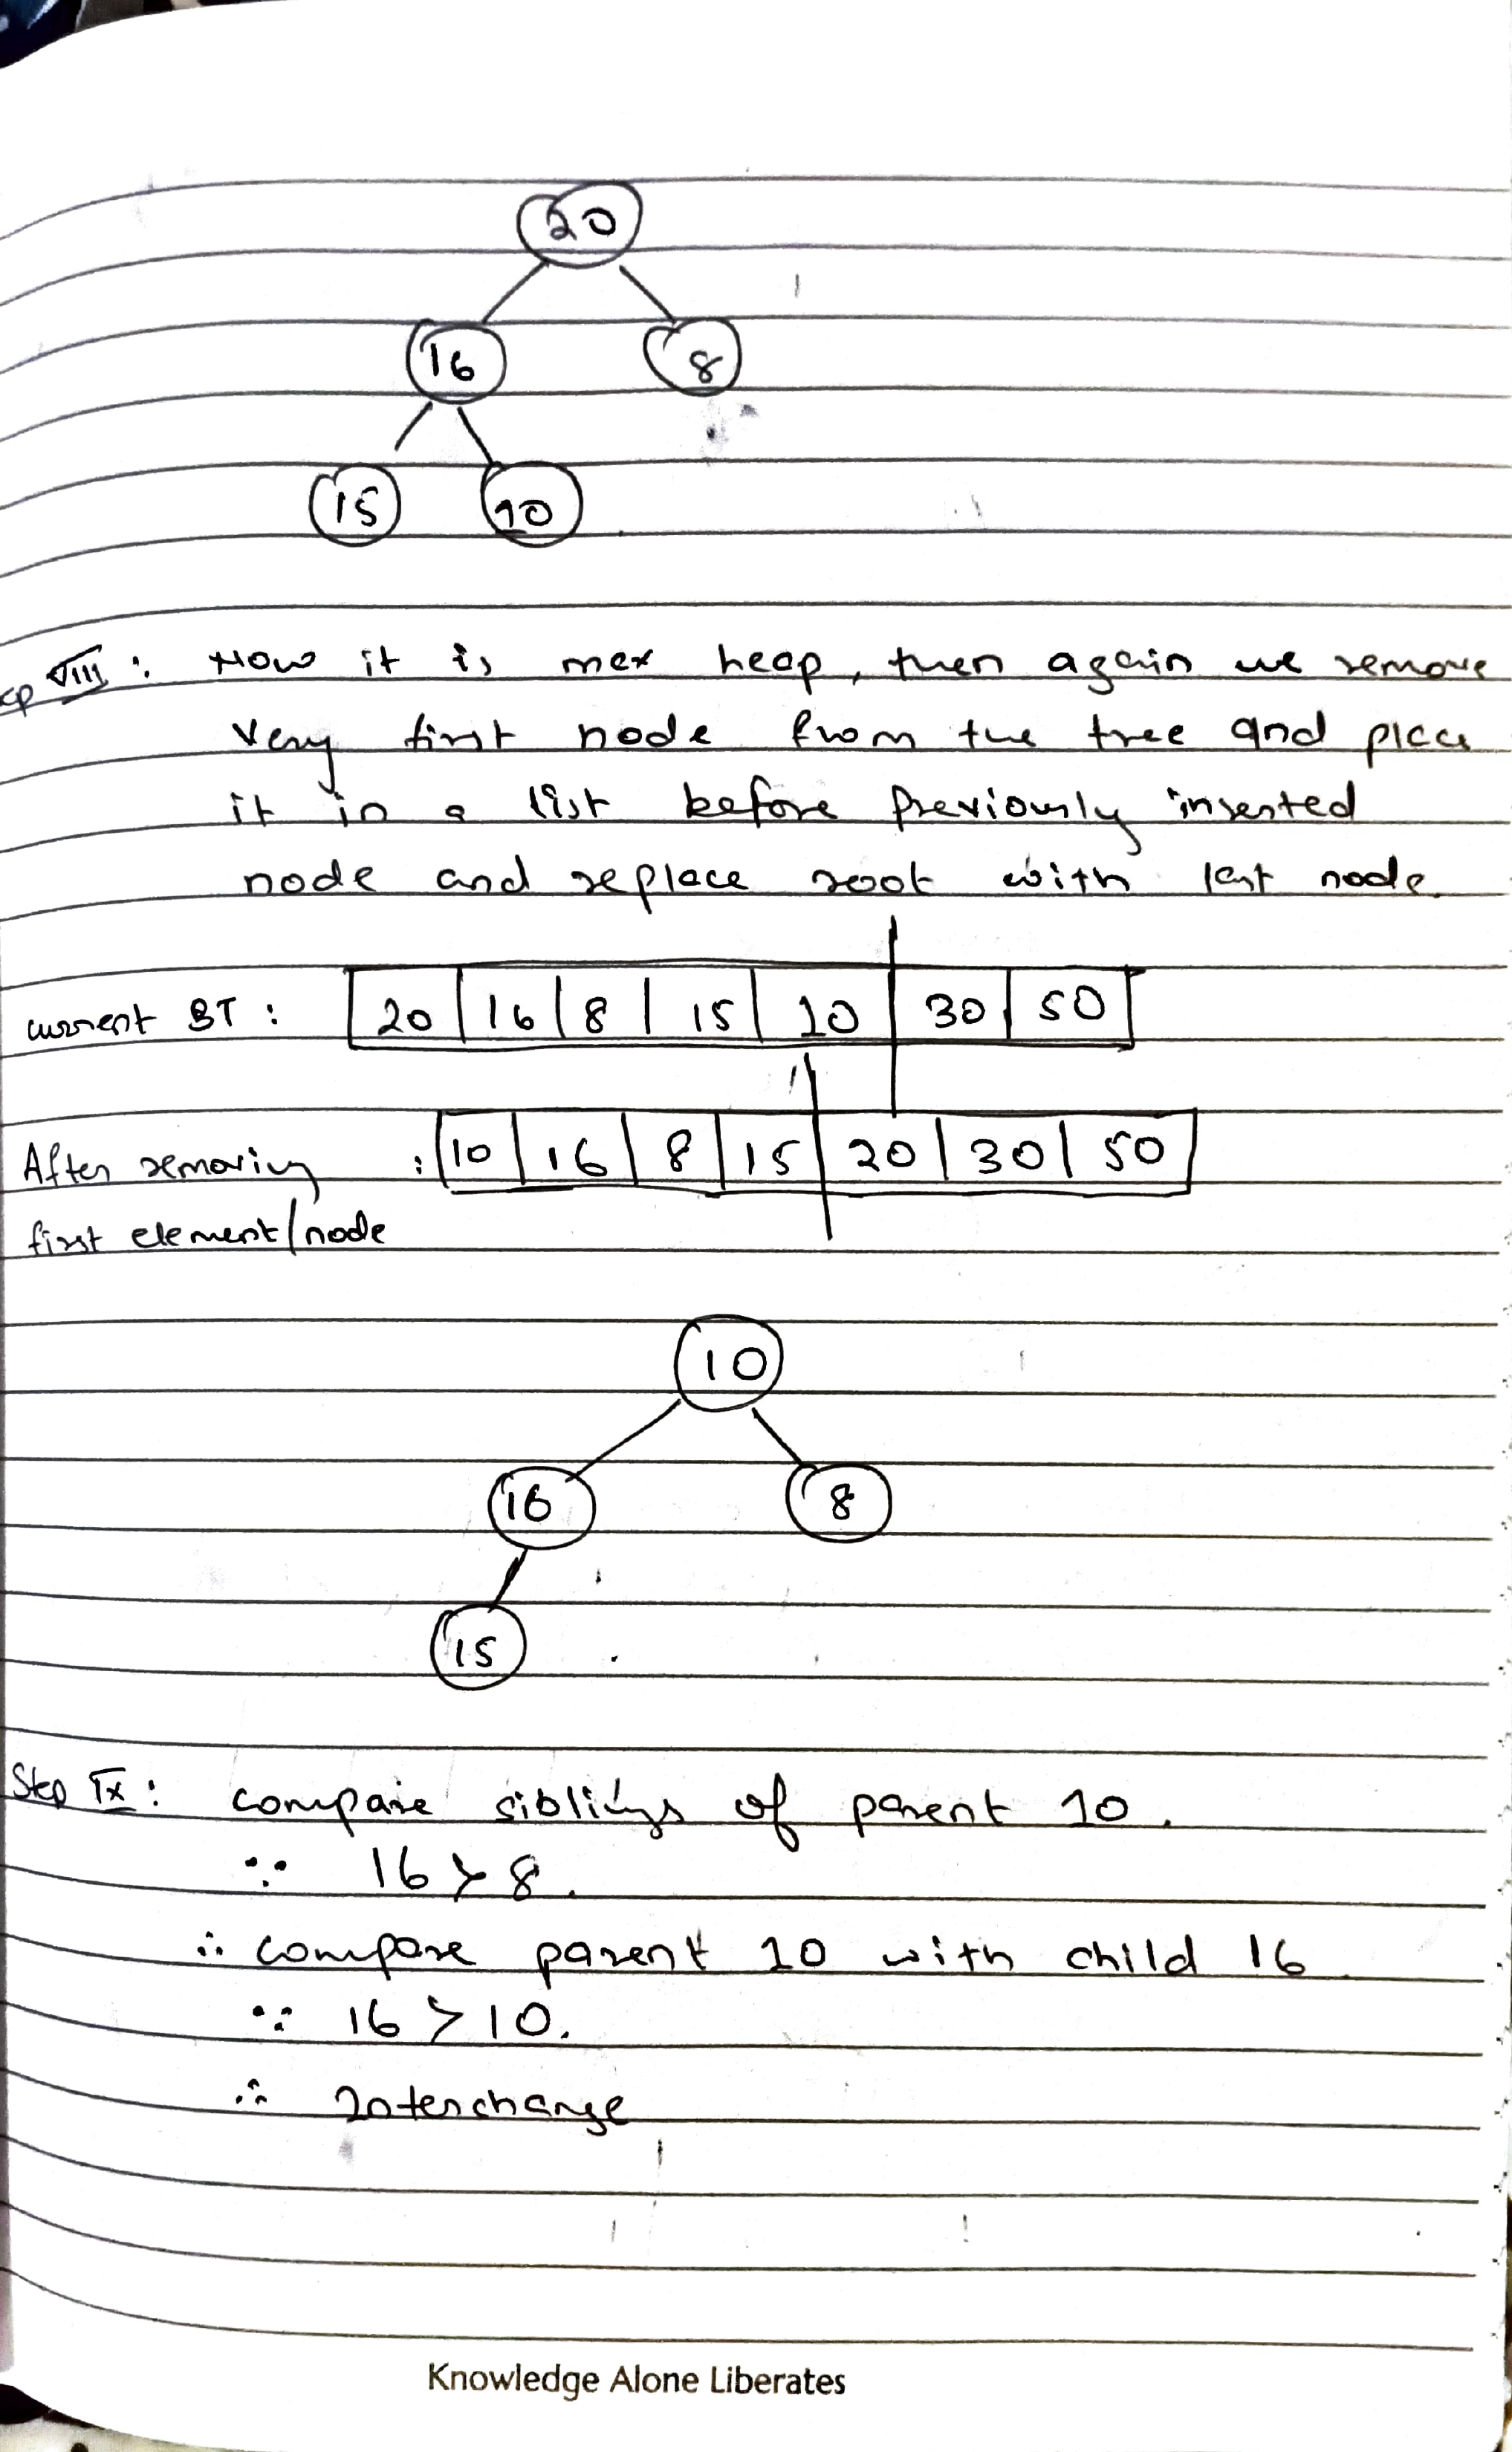 20
16 8
15 10
ep VIII : Now it is max heap, then again we remove
very first node from the tree and place
it in a list before previously inserted
node and replace root with last node.
current BT : 20 | 16 | 8 | 15 | 10 | 30 | 50
After removing : 10 | 16 | 8 | 15 | 20 | 30 | 50
first element/node
10
16 8
15
Step IX : compare siblings of parent 10.
∵ 16 > 8.
∴ compare parent 10 with child 16
∵ 16 > 10.
∴ Interchange
Knowledge Alone Liberates